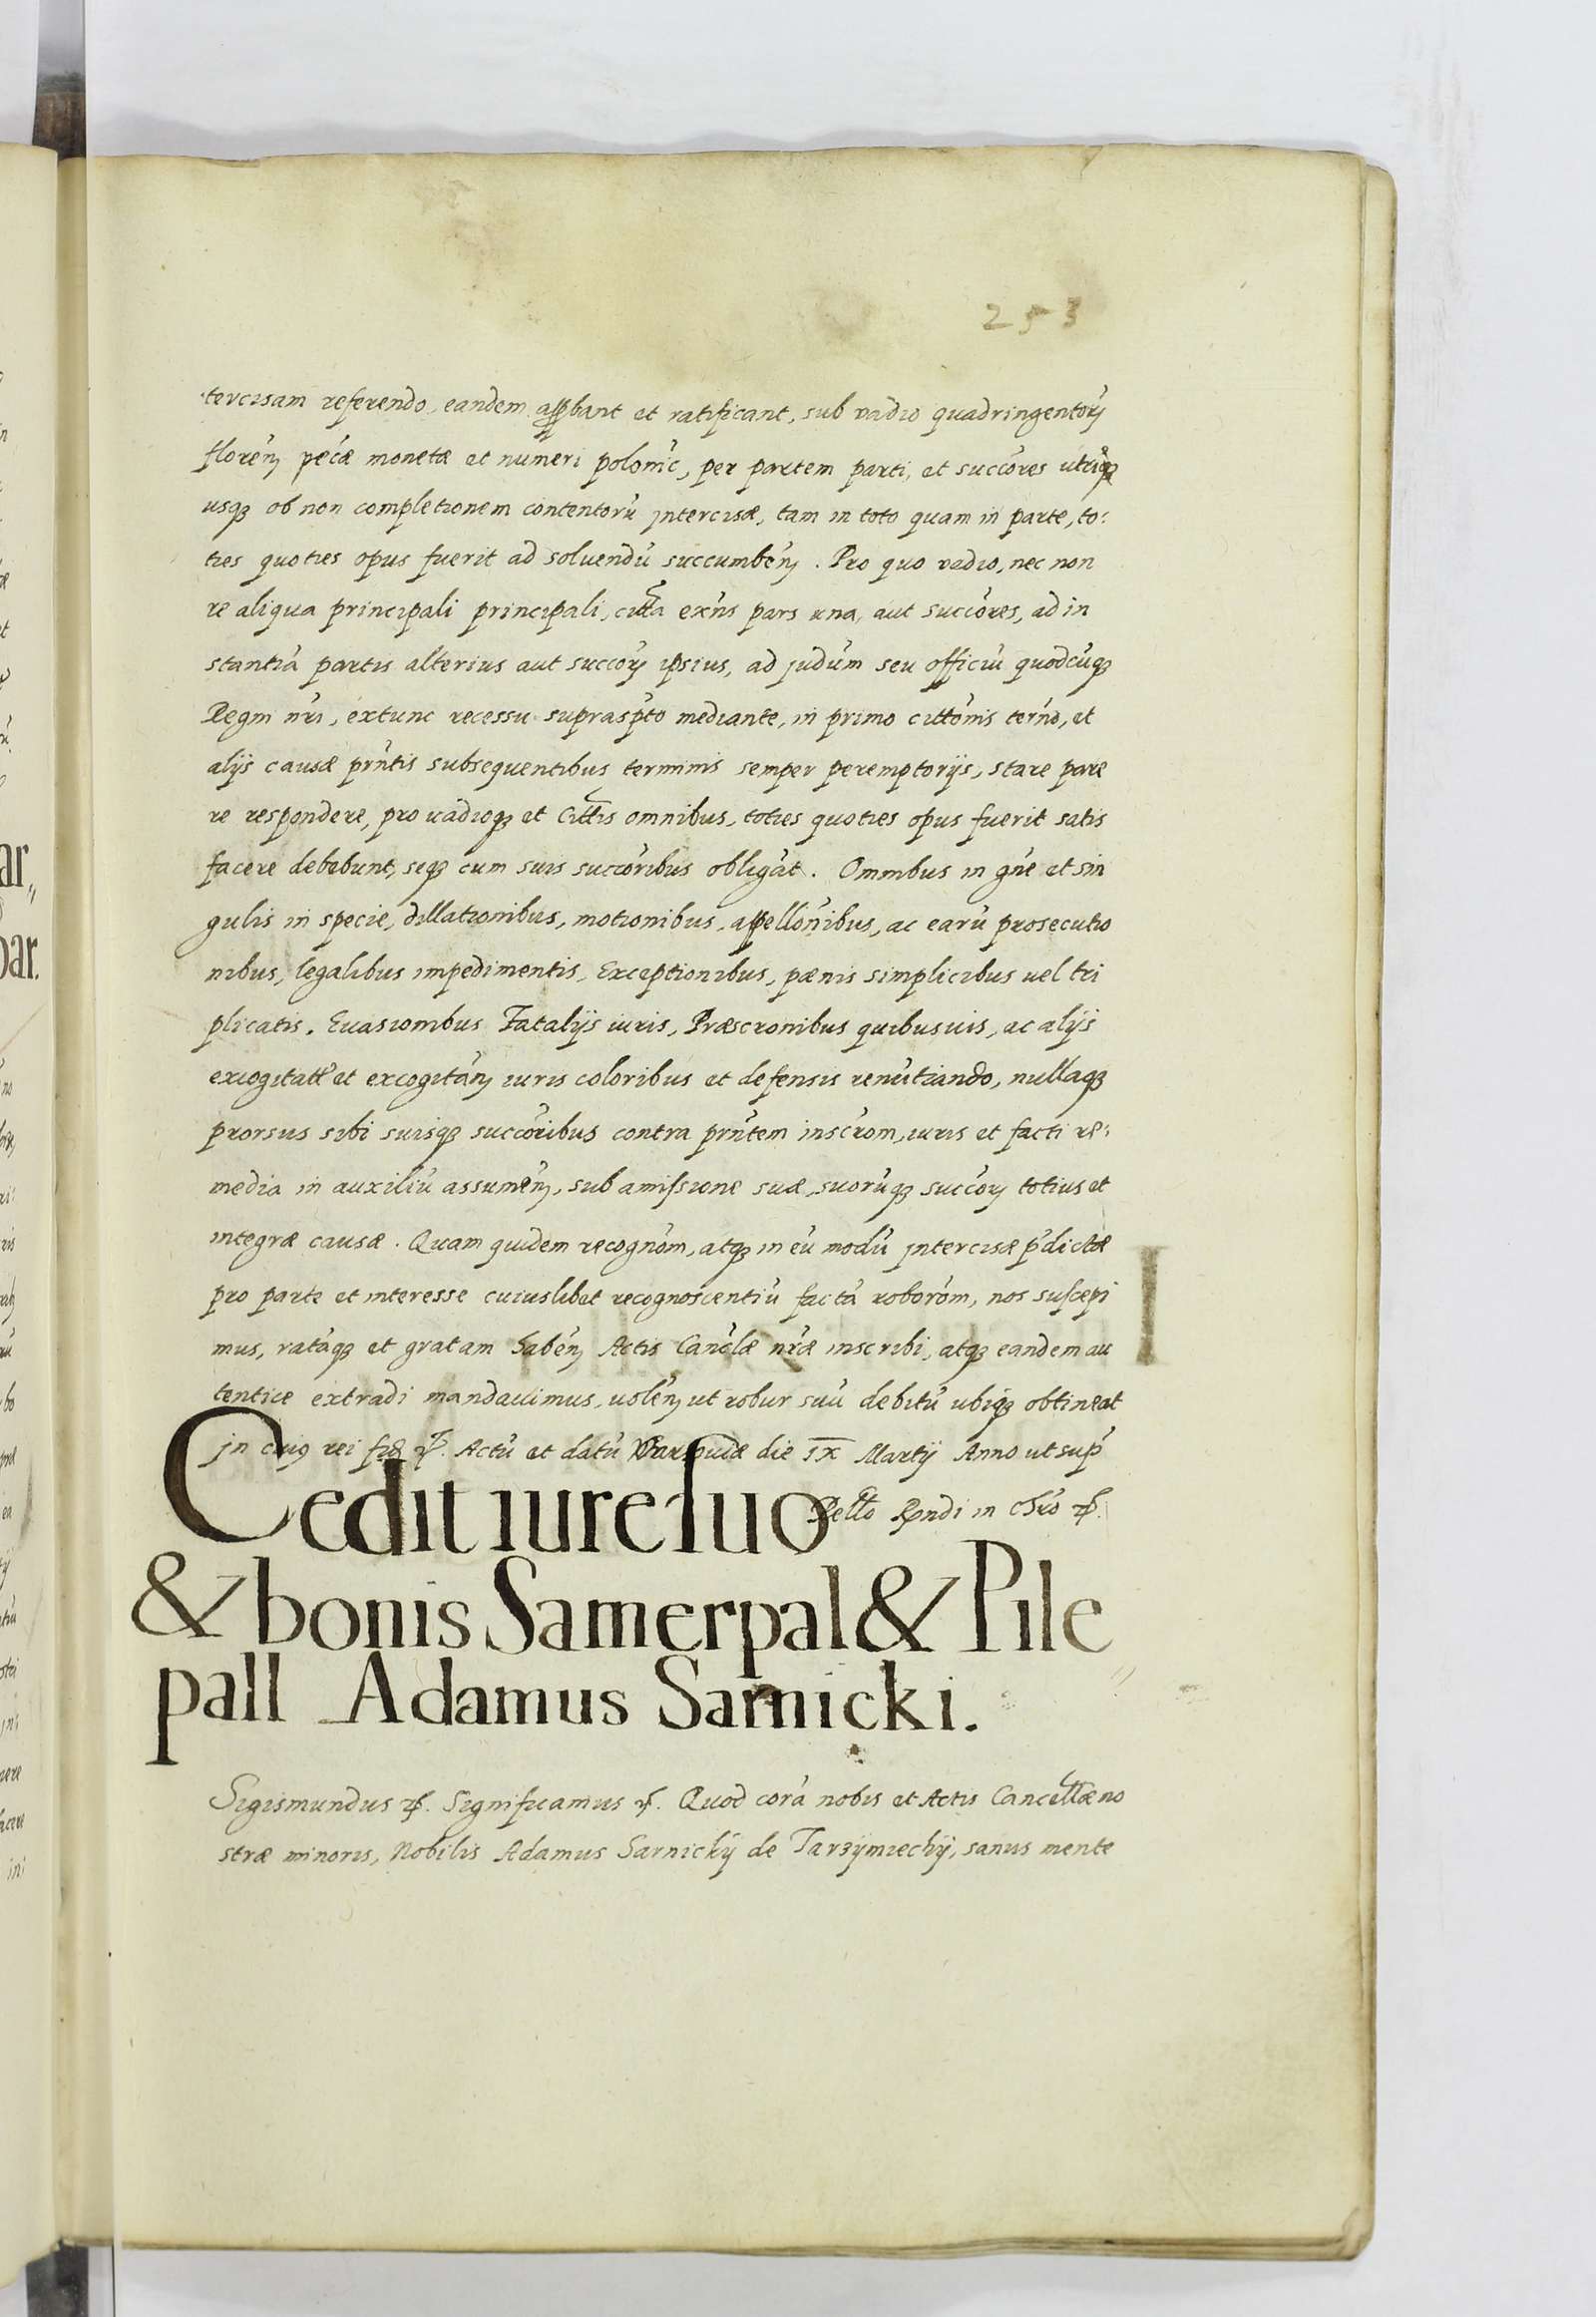 253
tercisam referendo, eandem appbant et ratificant, sub vadio quadringentorꝝ
floreñ, pecæ monetæ et numeri polonic, per partem parti, et succores utriq
usqꝫ ob non completionem contentorū jntercisæ, tam in toto quam in parte, to:
ties quoties opus fuerit ad soluendū succumbeñ. Pro quo vadio, nec non
re aliqua principali principali, citta exñs pars una, aut succores, ad in
stantiā partis alterius aut succorꝝ ipsius, ad judūm seu officiū quodcūqꝫ
Regni nr̄i, extunc recessu supraspto mediante, in primo cittonis terno, et
alijs causæ prn̄tis subsequentibus terminis semper peremptorijs, stare pare
re respondere, pro vadioqꝫ et cittis omnibus, toties quoties opus fuerit satis
facere debebunt, seqꝫ cum suis succoribus obligāt. Omnibus in gn̄e et sin
gulis in specie, dillationibus, motionibus, appellōnibus, ac earū prosecutio
nibus, legalibus impedimentis, Exceptionibus, pænis simplicibus uel tri
plicatis, Euasionibus Fatalijs iuris, Præscronibus quibusuis, ac alijs
exiogitatt et excogitāñ iuris coloribus et defensis renūtiando, nullaqꝫ
prorsus sibi suisqꝫ succoribus contra prn̄tem inscrom, iuris et facti re:
media in auxiliū assumeñ, sub amissione suæ, suorūqꝫ succorꝝ totius et
integræ causæ. Quam quidem recognom, atqꝫ in eū modū jntercisæ p̄dictæ
pro parte et interesse cuiuslibet recognoscentiū factā roborom, nos suscepi
mus, ratāqꝫ et gratam habeñ Actis Canclæ nr̄æ inscribi, atqꝫ eandem au
tentice extradi mandauimus, uoleñ ut robur suū debitū ubiqꝫ obtineat
jn cuiꝰ rei fid etc. Actū et datū Varsouiæ die IX Martij Anno ut sup̄
Retto Rndi in chro etc.
Cedit iure suo
& bonis Samerpal & Pile
pall Adamus Sarnicki.
Sigismundus etc. Significamus etc. Quod corā nobis et Actis Cancellæ no
stræ minoris, Nobilis Adamus Sarnickÿ de Tarzÿmiechÿ, sanus mente